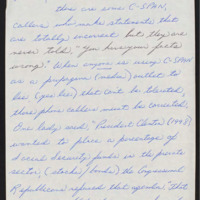 there are some C-SPAN,
callers who make statements that
are totally incorrect but they are
never told, "You have your facts
wrong." When anyone is using C-SPAN
as a propaganda (media) outlet to
lies (you lies) that can't be told,
those phone callers must be corrected.
One lady said, "President Clinton (1998)
wanted to place a percentage of
Social Security funds in the private
sector, (stocks/bonds) the Congressional
Republicans refused that agenda." That